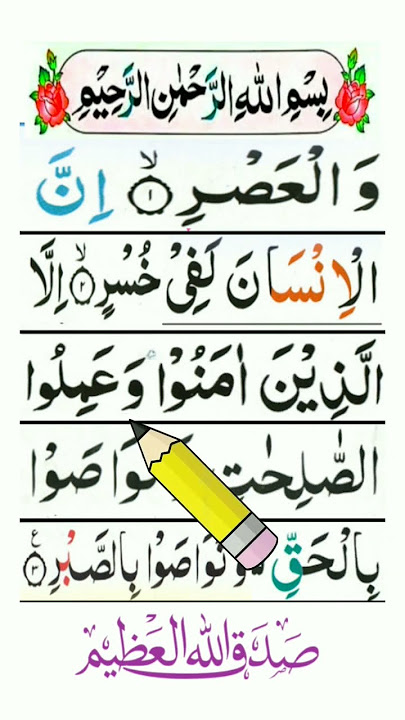 بِسْمِ اللهِ الرَّحْمٰنِ الرَّحِيْمِ
وَالْعَصْرِ ۙ﴿۱﴾ اِنَّ
الْاِنْسَانَ لَفِیْ خُسْرٍ ۙ﴿۲﴾ اِلَّا
الَّذِیْنَ اٰمَنُوْا وَعَمِلُوا
الصّٰلِحٰتِ وَتَوَاصَوْا
بِالْحَقِّ وَتَوَاصَوْا بِالصَّبْرِ ﴿۳﴾ ع
صَدَقَ اللهُ الْعَظِيْم